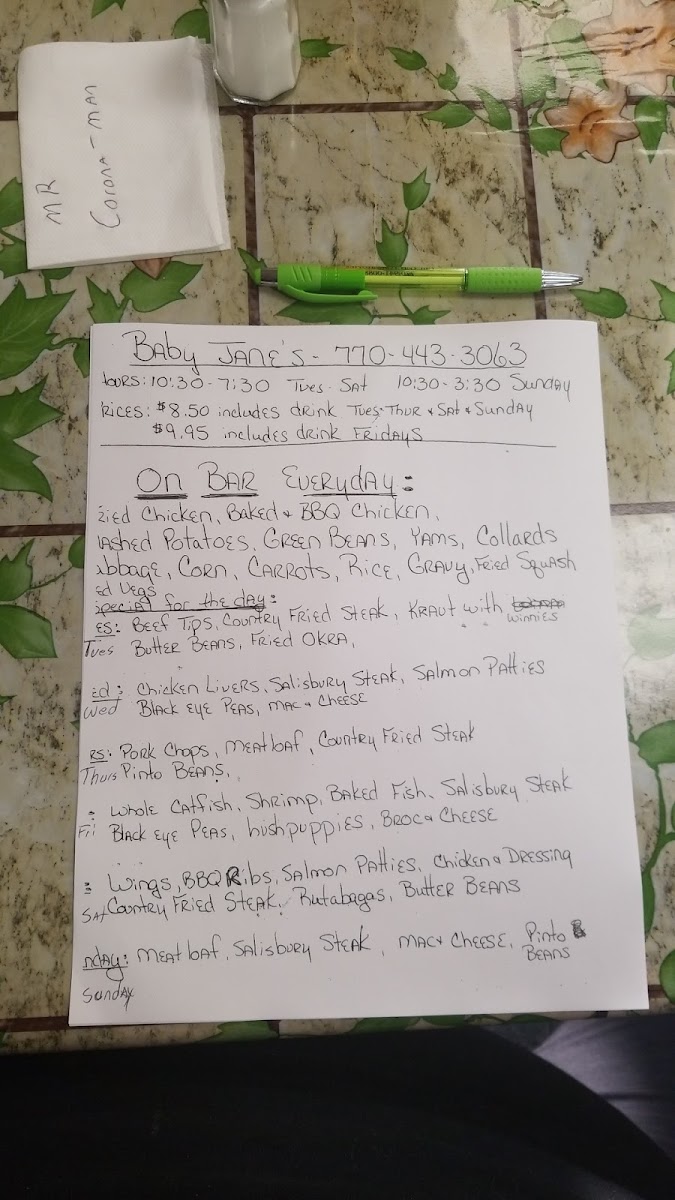 MR
Corona-man
Baby Jane's - 770-443-3063
ours: 10:30-7:30 Tues-Sat 10:30-3:30 Sunday
rices: $8.50 includes drink Tues-Thur & Sat & Sunday
$9.95 includes drink Fridays
On Bar Everyday:
ried Chicken, Baked & BBQ Chicken,
ashed Potatoes, Green Beans, Yams, Collards
abbage, Corn, Carrots, Rice, Gravy, Fried Squash
ed Vegs
Special for the day:
es: Beef Tips, Country Fried Steak, Kraut with winnies
Tues Butter Beans, Fried Okra,
ed: Chicken Livers, Salisbury Steak, Salmon Patties
Wed Black Eye Peas, Mac & Cheese
rs: Pork Chops, Meatloaf, Country Fried Steak
Thurs Pinto Beans,
: Whole Catfish, Shrimp, Baked Fish, Salisbury Steak
Fri Black Eye Peas, hushpuppies, Broc & Cheese
: Wings, BBQ Ribs, Salmon Patties, Chicken & Dressing
Sat Country Fried Steak, Rutabagas, Butter Beans
nday: Meatloaf, Salisbury Steak, Mac & Cheese, Pinto Beans
Sunday